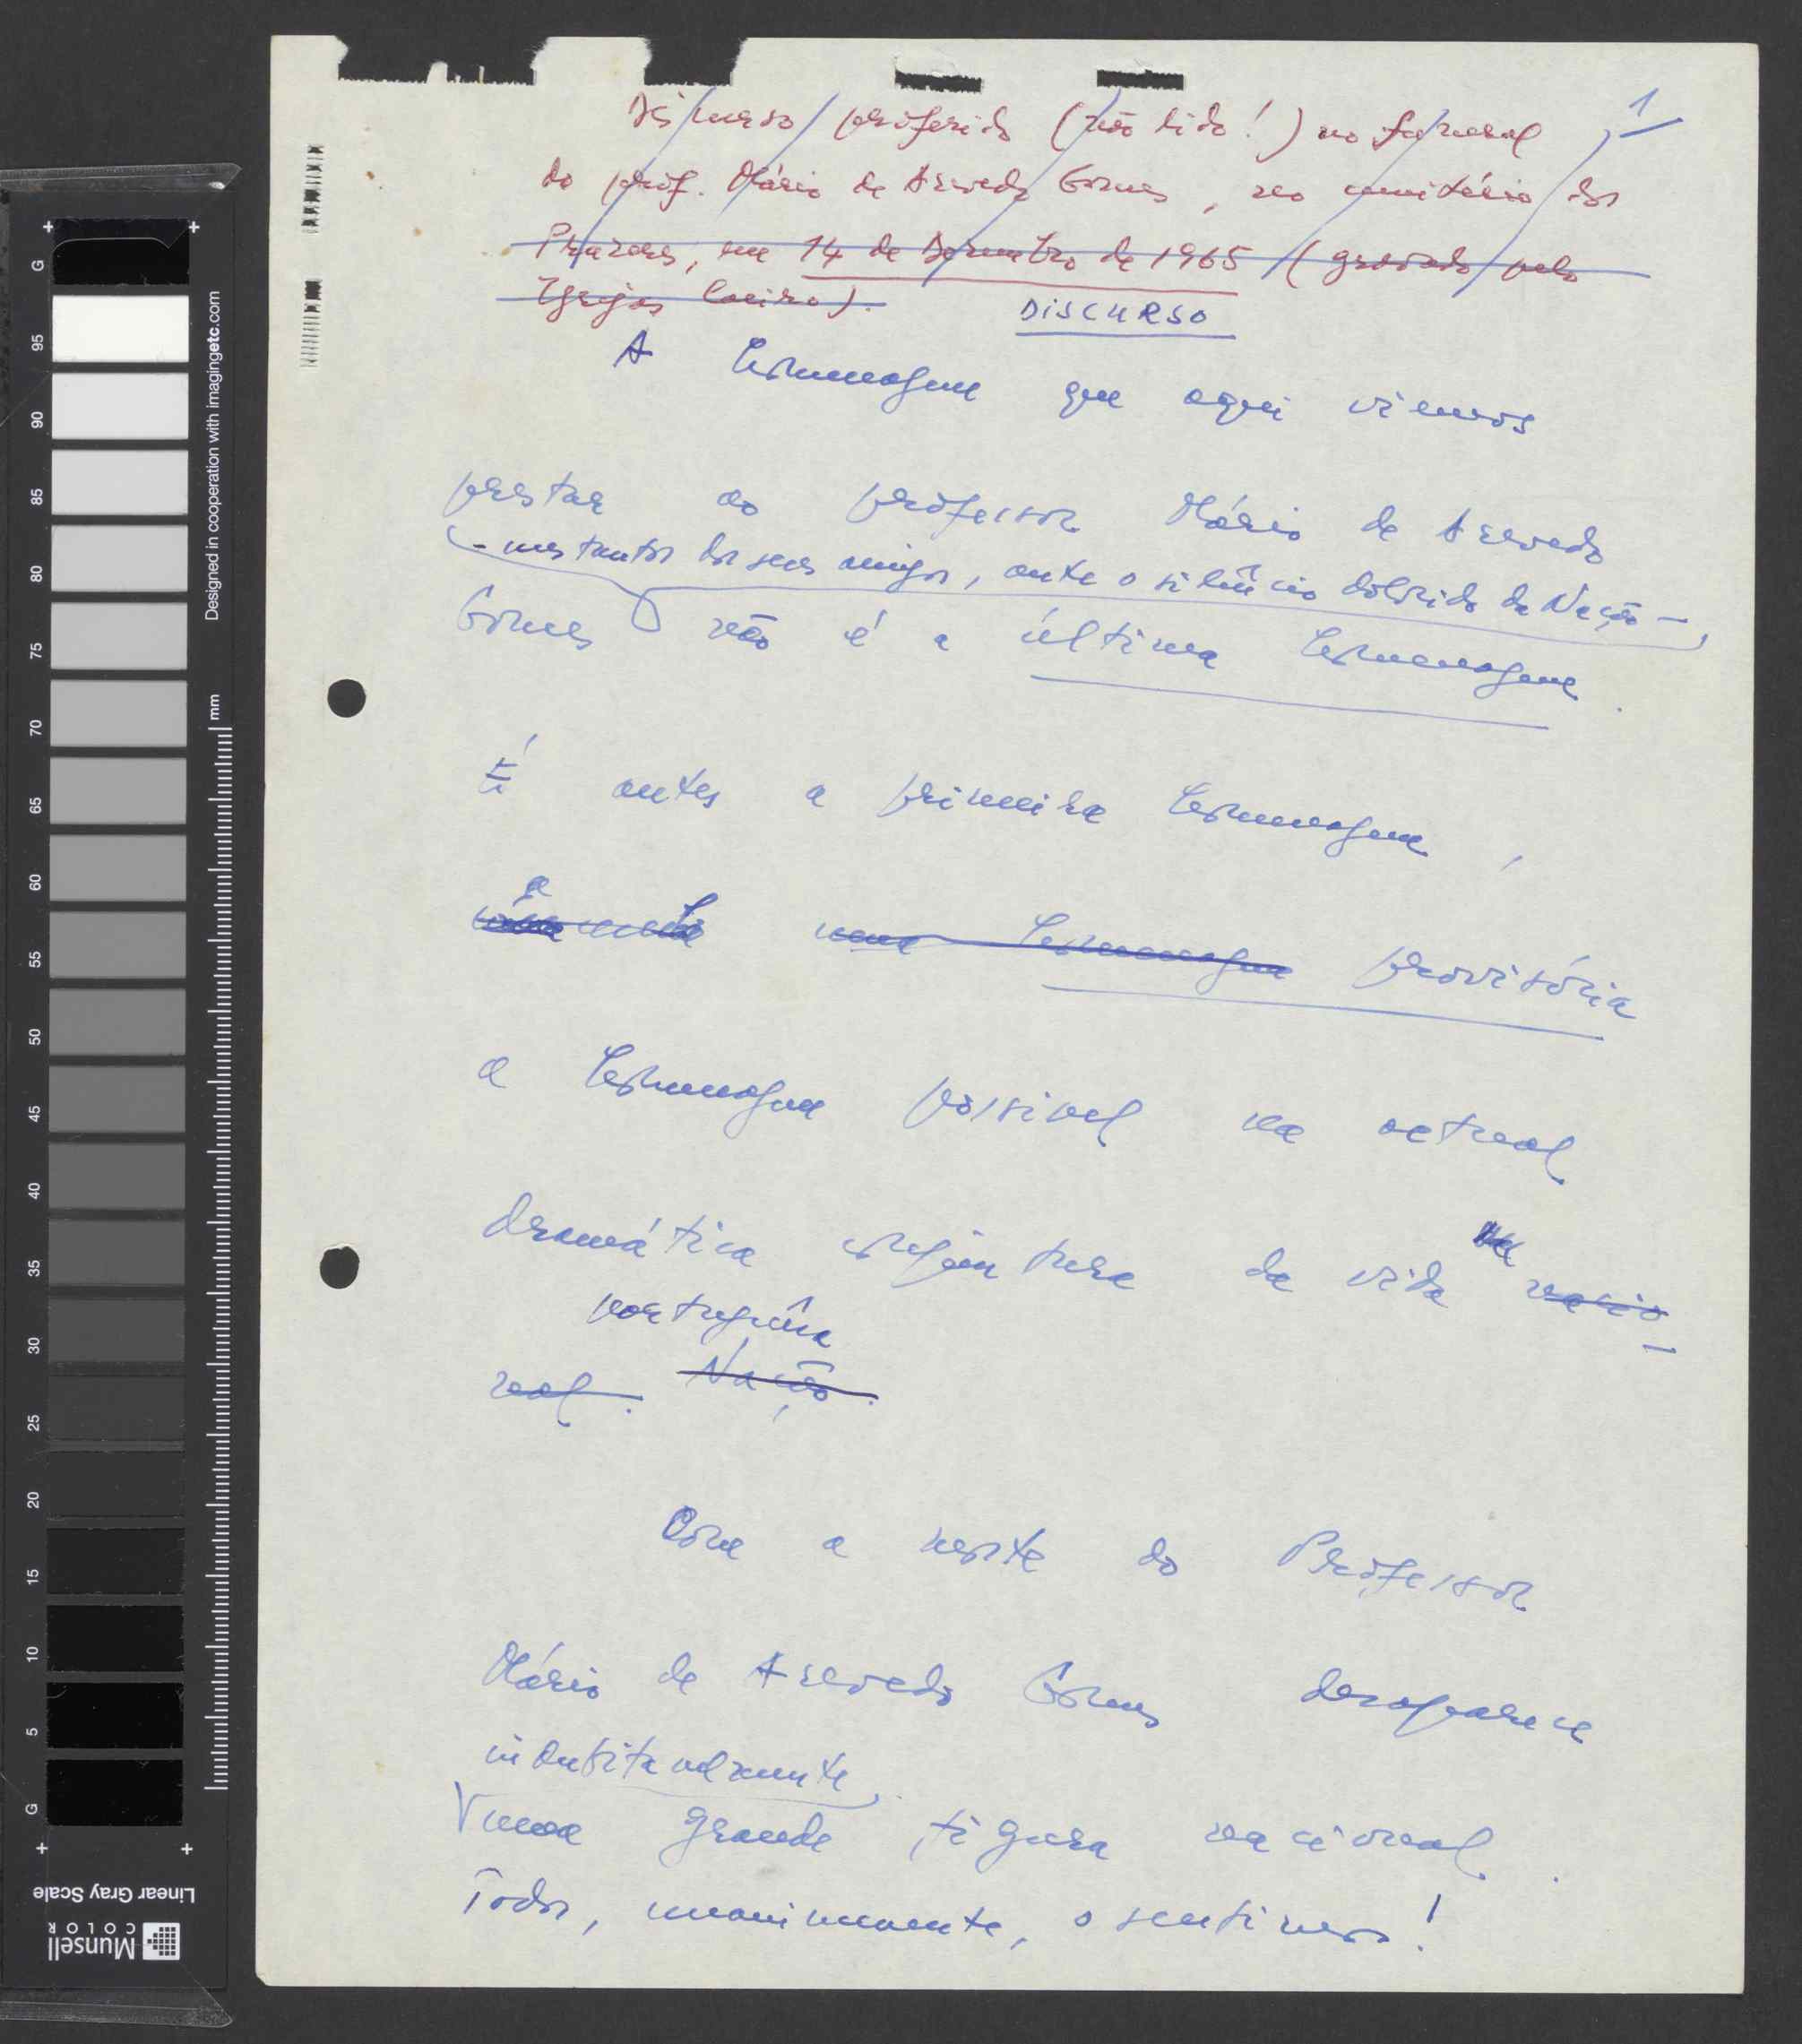 1
Discurso proferido (não lido!) no funeral
do prof. Mário de Azevedo Gomes, no cemitério dos
Prazeres, em 14 de Dezembro de 1965 (gravado pelo
Igrejas Caeiro).
DISCURSO
A homenagem que aqui viemos
prestar ao professor Mário de Azevedo
- uns tantos dos seus amigos, ante o silêncio dolorido da Nação -,
Gomes não é a última homenagem.
É antes a primeira homenagem,
a
uma homenagem provisória
a homenagem possível na actual
dramática conjuntura da vida nacio-
portuguêsa
nal. Nação.
Com a morte do Professor
Mário de Azevedo Gomes desaparece
indubitavelmente
uma grande figura nacional.
Todos, unanimemente, o sentimos!
G
95
90
85
80
75
70
65
60
55
50
45
40
35
30
25
20
15
10
5
G
mm
Designed in cooperation with imagingetc.com
Linear Gray Scale
Munsell
COLOR